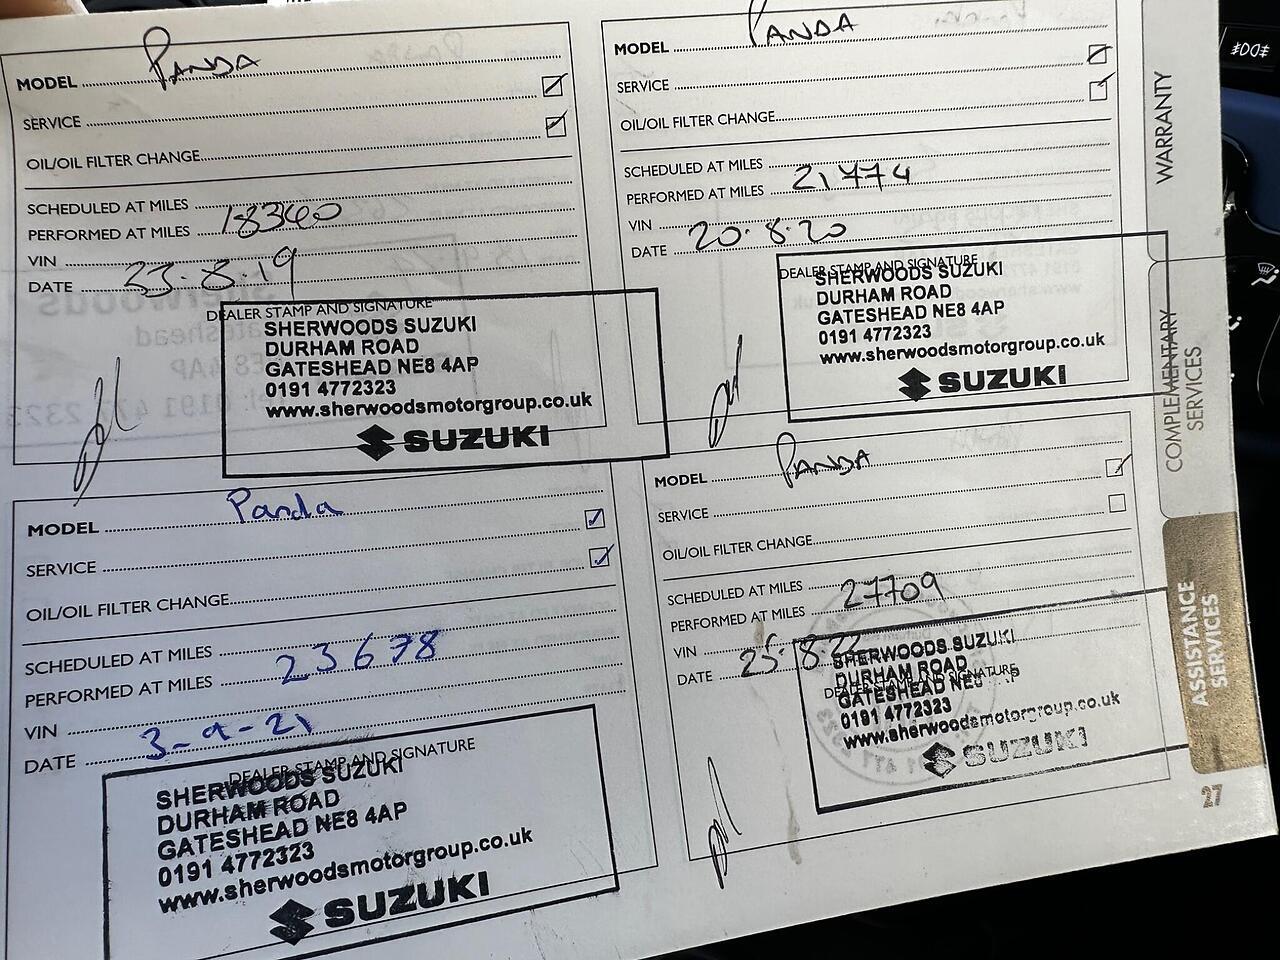 MODEL Panda
SERVICE
OIL/OIL FILTER CHANGE
SCHEDULED AT MILES
PERFORMED AT MILES 18360
VIN
DATE 23.8.19
DEALER STAMP AND SIGNATURE
SHERWOODS SUZUKI
DURHAM ROAD
GATESHEAD NE8 4AP
0191 4772323
www.sherwoodsmotorgroup.co.uk
SUZUKI
MODEL PANDA
SERVICE
OIL/OIL FILTER CHANGE
SCHEDULED AT MILES
PERFORMED AT MILES 21774
VIN
DATE 20.8.20
DEALER STAMP AND SIGNATURE
SHERWOODS SUZUKI
DURHAM ROAD
GATESHEAD NE8 4AP
0191 4772323
www.sherwoodsmotorgroup.co.uk
SUZUKI
MODEL Panda
SERVICE
OIL/OIL FILTER CHANGE
SCHEDULED AT MILES
PERFORMED AT MILES 23678
VIN
DATE 3-9-21
DEALER STAMP AND SIGNATURE
SHERWOODS SUZUKI
DURHAM ROAD
GATESHEAD NE8 4AP
0191 4772323
www.sherwoodsmotorgroup.co.uk
SUZUKI
MODEL PANDA
SERVICE
OIL/OIL FILTER CHANGE
SCHEDULED AT MILES
PERFORMED AT MILES 27709
VIN
DATE 25.8.22
DEALER STAMP AND SIGNATURE
SHERWOODS SUZUKI
DURHAM ROAD
GATESHEAD
0191 4772323
www.sherwoodsmotorgroup.co.uk
SUZUKI
WARRANTY
COMPLEMENTARY
SERVICES
ASSISTANCE
SERVICES
27